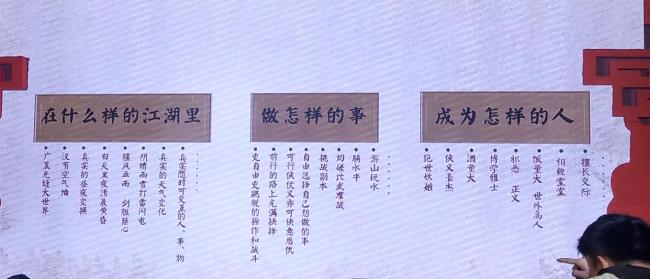 在什么样的江湖里
• 广袤无缝大世界
• 没有空气墙
• 真实的昼夜变换
• 白天黑夜清晨黄昏
• 腥风血雨 剑胆琴心
• 阴晴雨雪打雷闪电
• 真实的天气变化
• 真实随时可交互的人、事、物
......
做怎样的事
• 更自由更跳脱的操作和战斗
• 前行的路上充满抉择
• 可行侠仗义亦可快意恩仇
• 自由选择自己想做的事
• 挑战副本
• 切磋比武战
• 骑水牛
• 游山玩水
......
成为怎样的人
• 绝世妖姬
• 侠义豪杰
• 酒量大
• 博学雅士
• 邪恶 正义
• 饭量大 世外高人
• 相貌堂堂
• 擅长交际
......